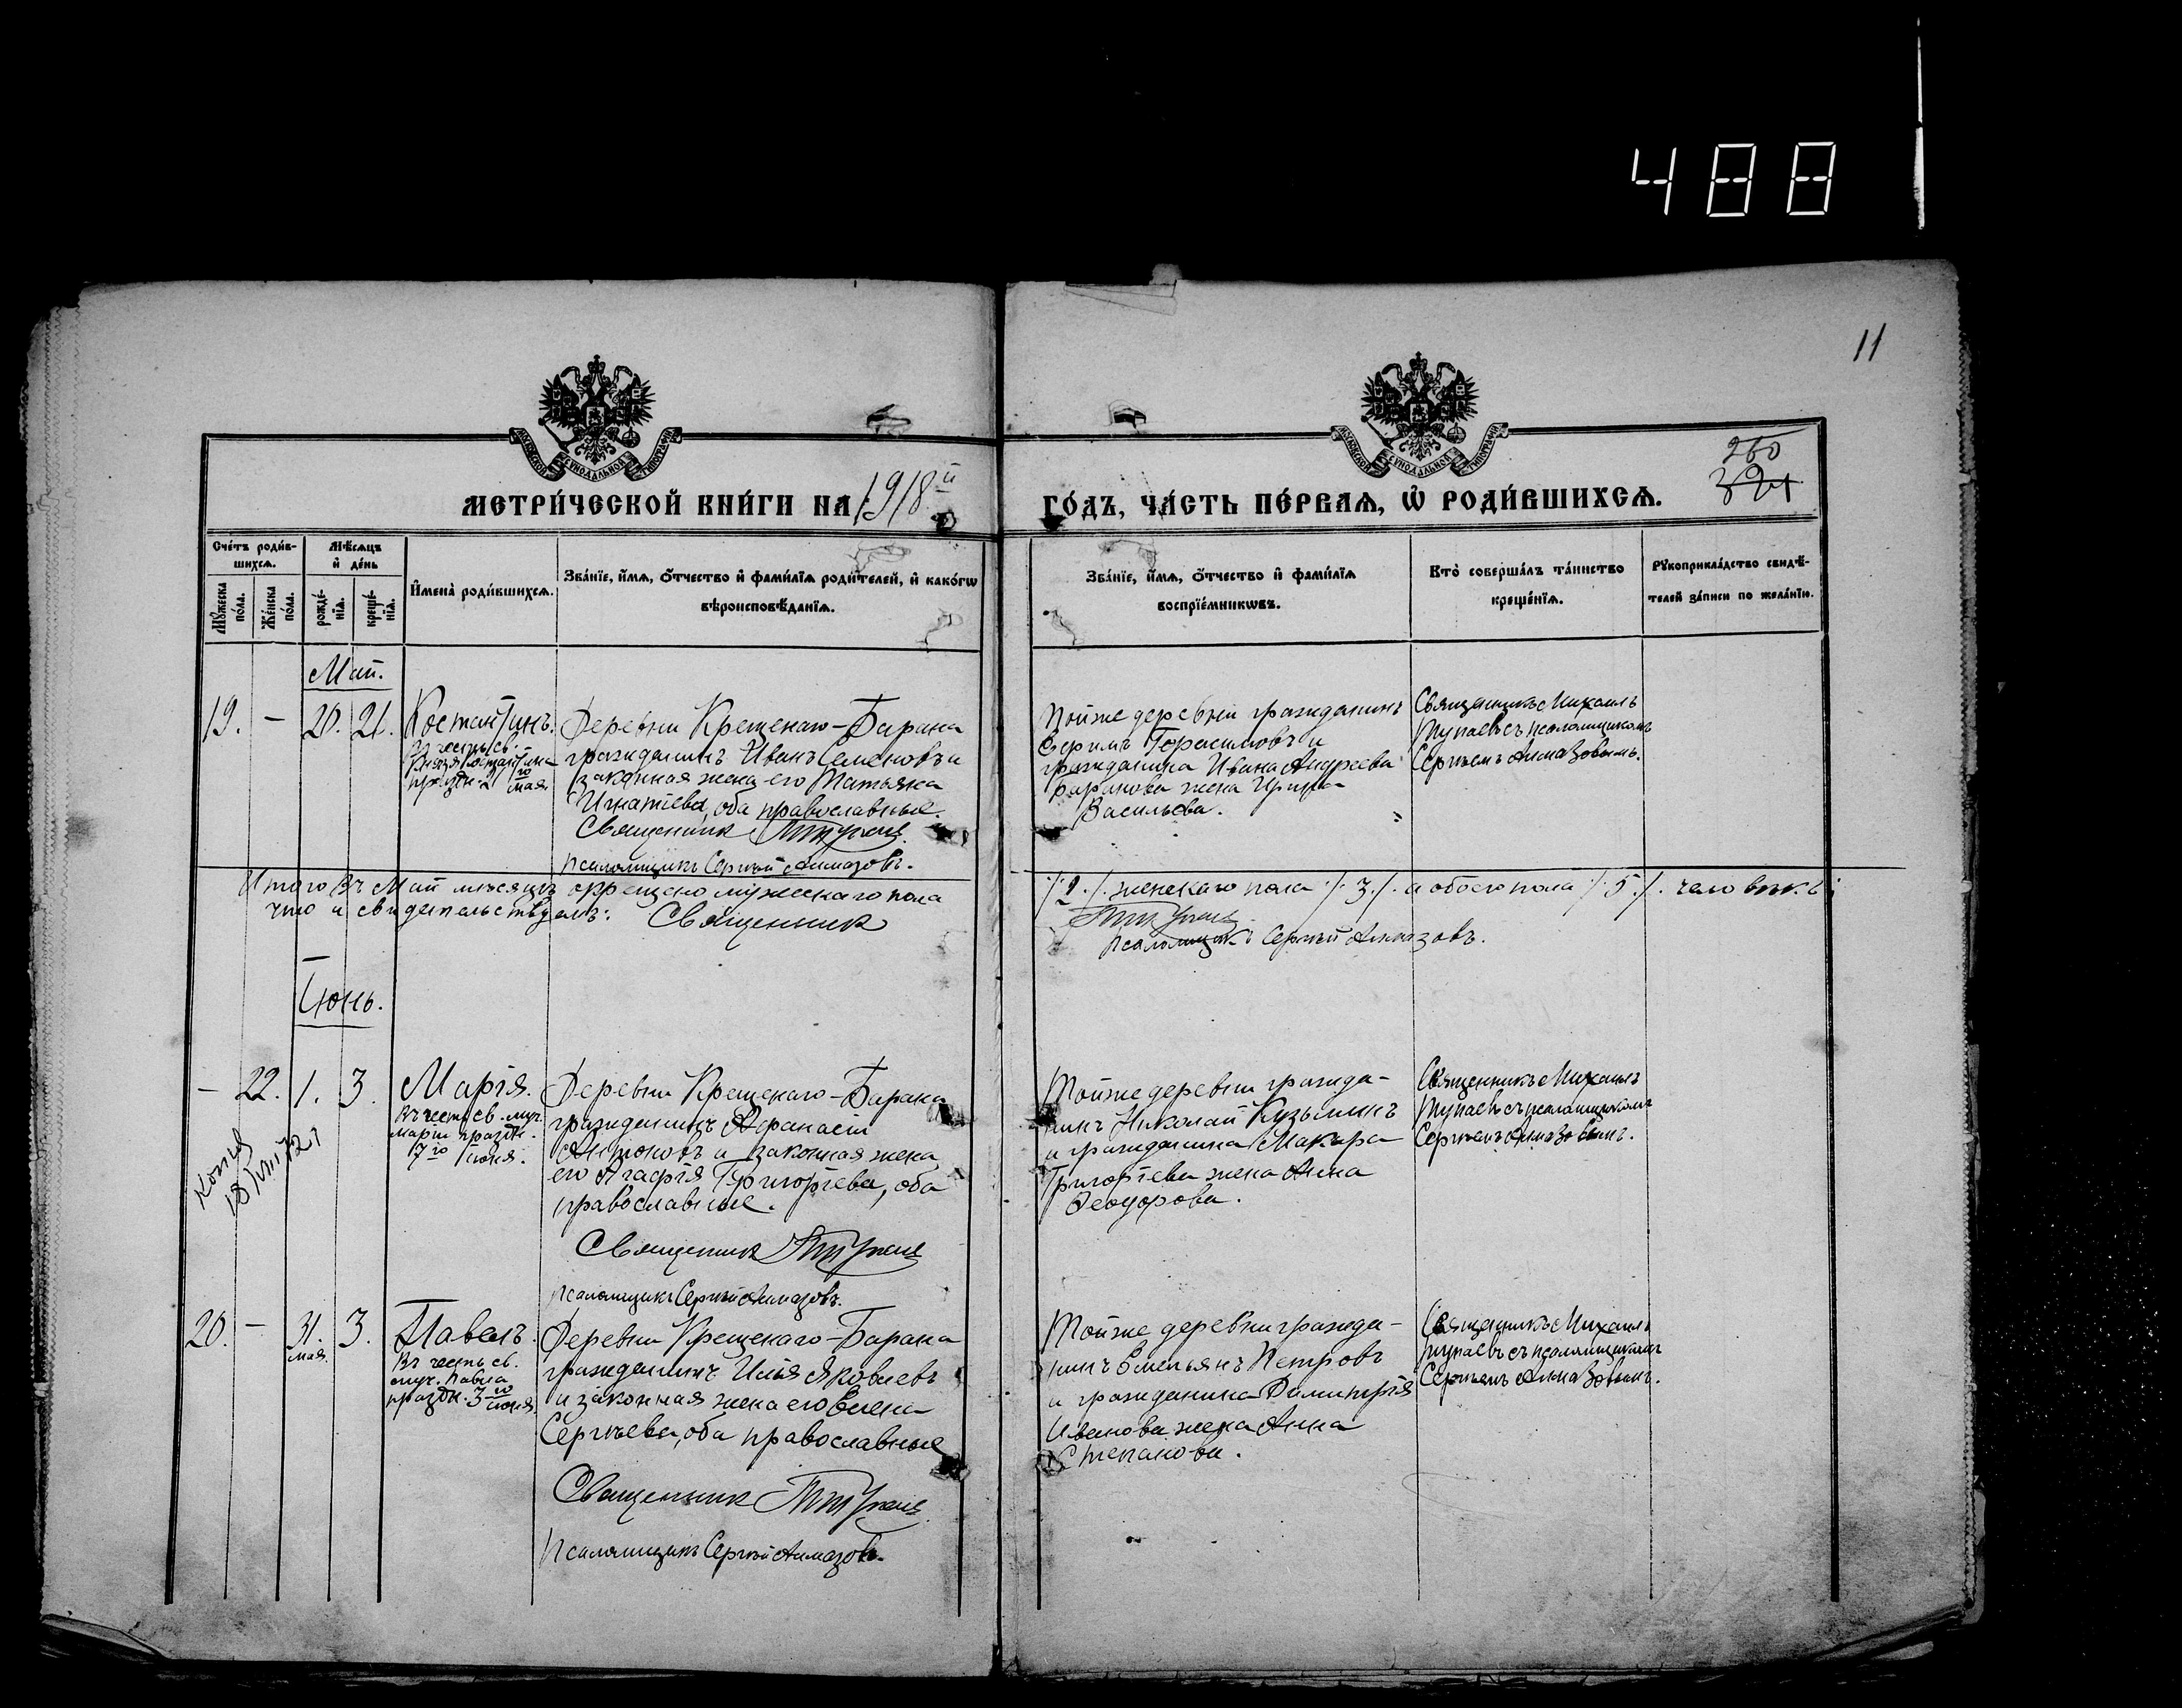 488
11
МОСКОВСКОЙ СѴНОДАЛЬНОЙ ТИПОГРАФІИ
МОСКОВСКОЙ СѴНОДАЛЬНОЙ ТИПОГРАФІИ
260
321
МЕТРИ́ЧЕСКОЙ КНИ́ГИ НА 1918й
ГО́ДЪ, ЧА́СТЬ ПЕ́РВАѦ, Ѡ҆ РОДИ́ВШИХСѦ.
Сче́тъ роди́в-
шихсѧ.
Мꙋ́жеска по́ла.
Же́нска по́ла.
Мѣ́сѧцъ
и҆ де́нь
рожде́-
нїѧ.
креще́-
нїѧ.
И҆мена̀ роди́вшихсѧ.
Зва́нїе, и҆́мѧ, ѻ҆́тчество и҆ фами́лїѧ роди́телей, и҆ како́гѡ
вѣроисповѣ́данїѧ.
Зва́нїе, и҆́мѧ, ѻ҆́тчество и҆ фами́лїѧ
воспрїе́мникѡвъ.
Кто̀ соверша́лъ та́инство
креще́нїѧ.
Рꙋкоприкла́дство свидѣ́-
телей за́писи по жела́нїю.
Май.
19. - 20. 21.
Костантинъ.
Въ честь св.
Князя Костантина
праздн. 21го мая
Деревни Крещенаго-Барана
гражданинъ Иванъ Семеновъ и
законная жена его Татьяна
Игнатіева, оба православные.
Священникъ Тупаевъ
Псаломщикъ Сергѣй Алмазовъ.
Тойже деревни гражданинъ
Ефримъ Герасимовъ и
гражданина Ивана Андреева
Баранова жена Ирина
Васильева.
Священникъ Михаилъ
Тупаевъ съ псаломщикомъ
Сергѣемъ Алмазовымъ.
Итого въ Май мѣсяцѣ окрещено мужескаго пола
что и свидѣтельствуемъ: Священникъ
/:2:/ женскаго пола /:3:/ а обоего пола /:5:/ человѣкъ;
Тупаевъ
Псаломщикъ Сергѣй Алмазовъ.
Іюнь.
- 22. 1. 3.
копія
18/VIII 21
Марія.
Въ честь св. муч.
Маріи праздн.
7го іюня.
Деревни Крещенаго-Барана
гражданинъ Афанасій
Антоновъ и законная жена
его Агафія Григоріева, оба
православные.
Священникъ Тупаевъ
Псаломщикъ Сергѣй Алмазовъ.
Тойже деревни гражда-
нинъ Николай Кузьминъ
и гражданина Макара
Григоріева жена Анна
Ѳеодорова.
Священникъ Михаилъ
Тупаевъ съ псаломщикомъ
Сергѣемъ Алмазовымъ.
20. - 31. мая. 3.
Павелъ.
Въ честь св.
муч. Павла
праздн. 3го іюня.
Деревни Крещенаго-Барана
гражданинъ Илья Яковлевъ
и законная жена его Елена
Сергѣева, оба православные
Священникъ Тупаевъ
Псаломщикъ Сергѣй Алмазовъ.
Тойже деревни гражда-
нинъ Емельянъ Петровъ
и гражданина Димитрія
Иванова жена Анна
Степанова.
Священникъ Михаилъ
Тупаевъ съ псаломщикомъ
Сергѣемъ Алмазовымъ.